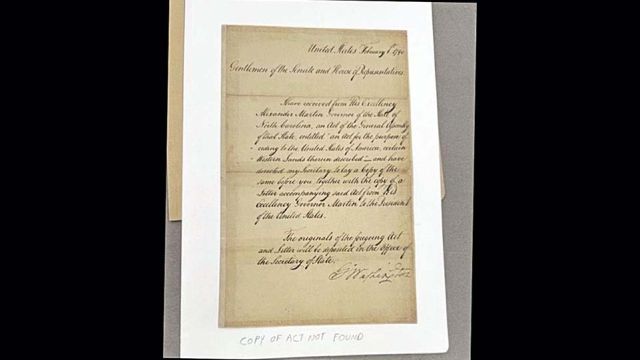 United States February 1st 1790
Gentlemen of the Senate and House of Representatives.
I have received from His Excellency
Alexander Martin Governor of the State of
North Carolina, an Act of the General Assembly
of that State, entitled "an Act for the purpose of
ceding to the United States of America, certain
Western Lands therein described — and have
directed my Secretary to lay a Copy of the
same before you, together with the copy of a
Letter accompanying said Act from His
Excellency Governor Martin to the President
of the United States.
The originals of the foregoing Act
and Letter will be deposited in the Office of
the Secretary of State.
G. Washington
COPY OF ACT NOT FOUND